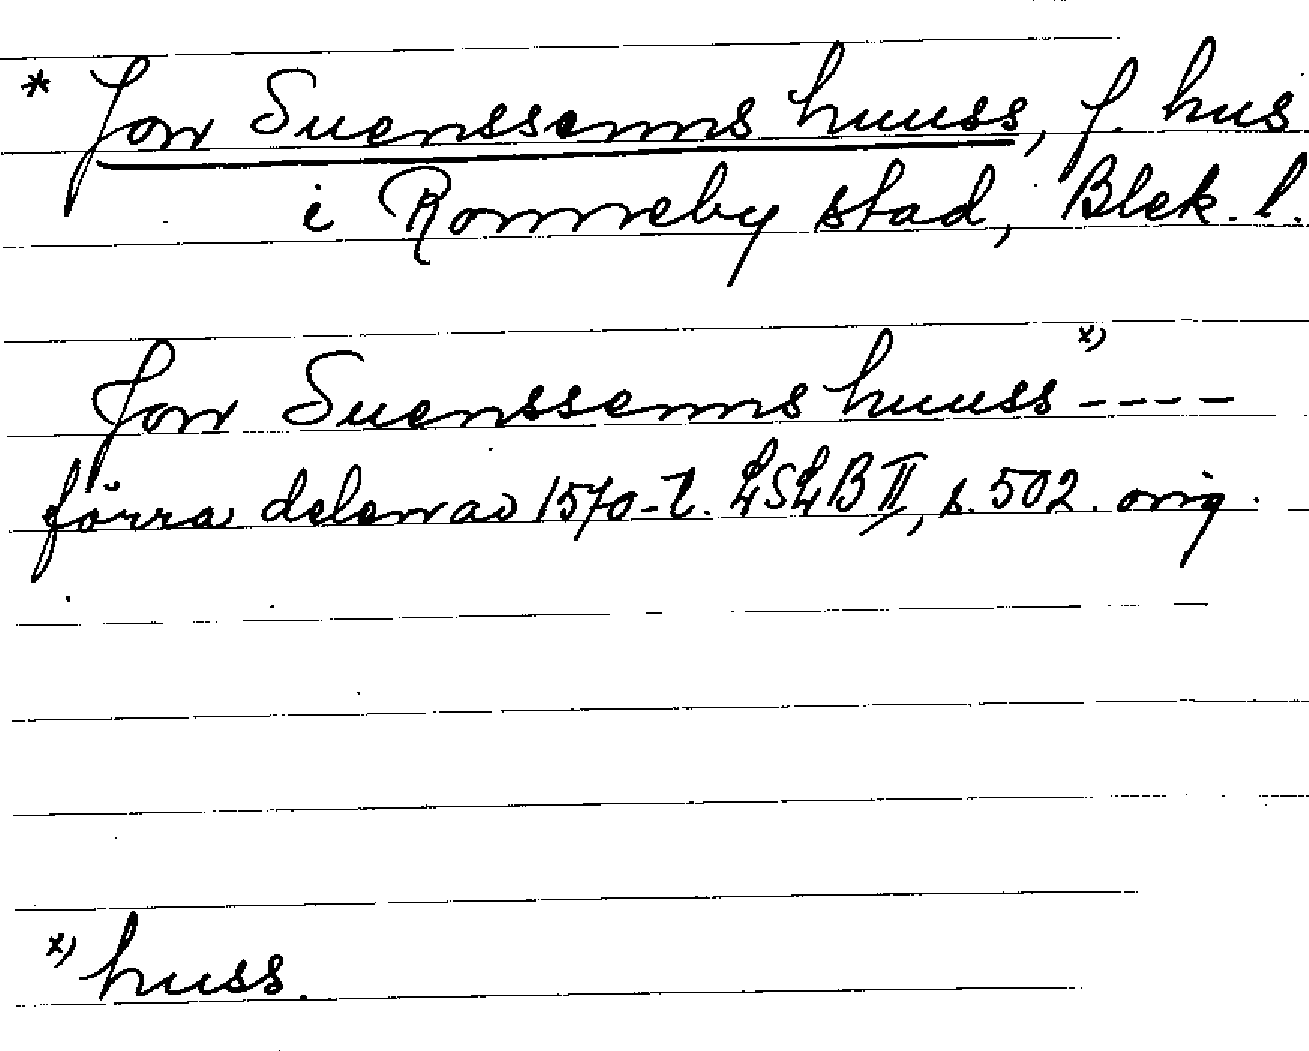 * Jon Suenssenns huuss, f. hus
i Ronneby stad, Blek. l.
Jon Suenssenns huuss x) ----
förra delen av 1570-t. LSLB II, s. 502. orig.
x) huss.